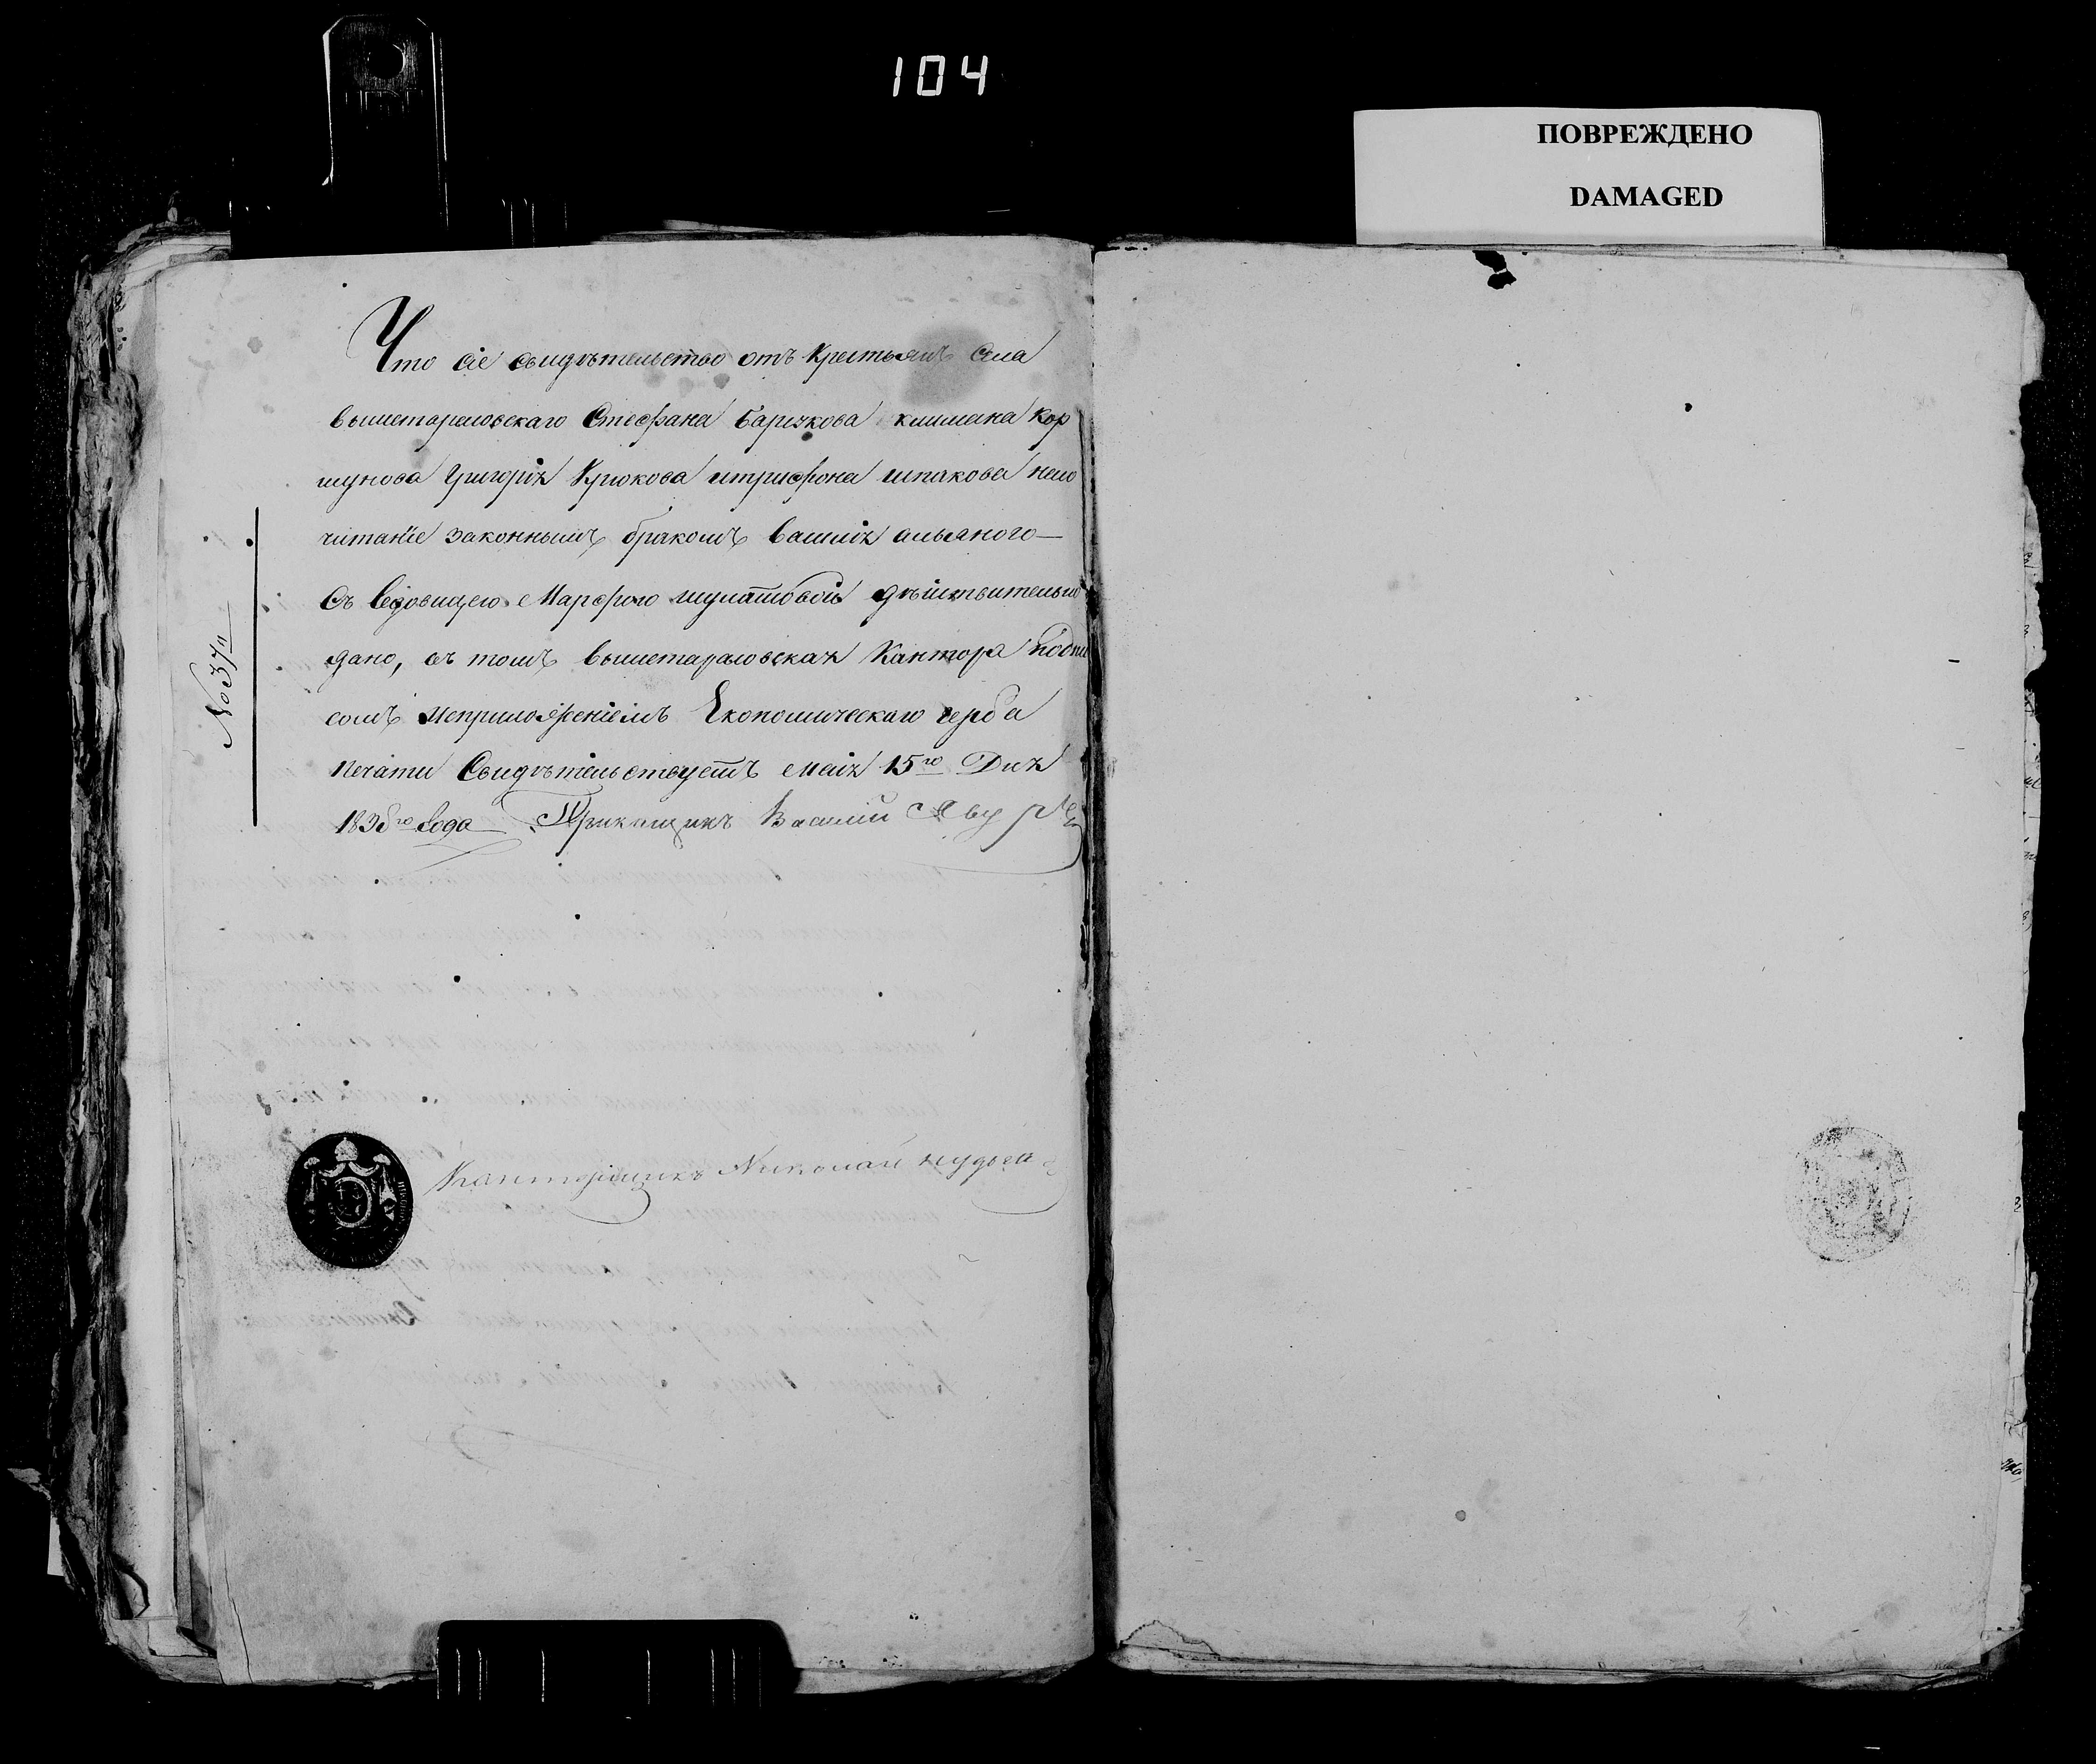 104
ПОВРЕЖДЕНО
DAMAGED
Что сіе свидѣтельство отъ Крестьянъ Села
вышетарасовскаго Стефана Баричкова климана Кор
шунова Григорія Крюкова итрифона шпакова насо
читаніе законнымъ бракомъ василія
Съ вдовицею Марфою дѣйствительно
дано, въ томъ вышетарасовская Кантора подпи
сомъ Исприложеніемъ Економическаго герба
печати Свидѣтельствуетъ Маія 15го Дня
183 года Прикащикъ Василій
№ 37й
Канторщикъ Николай